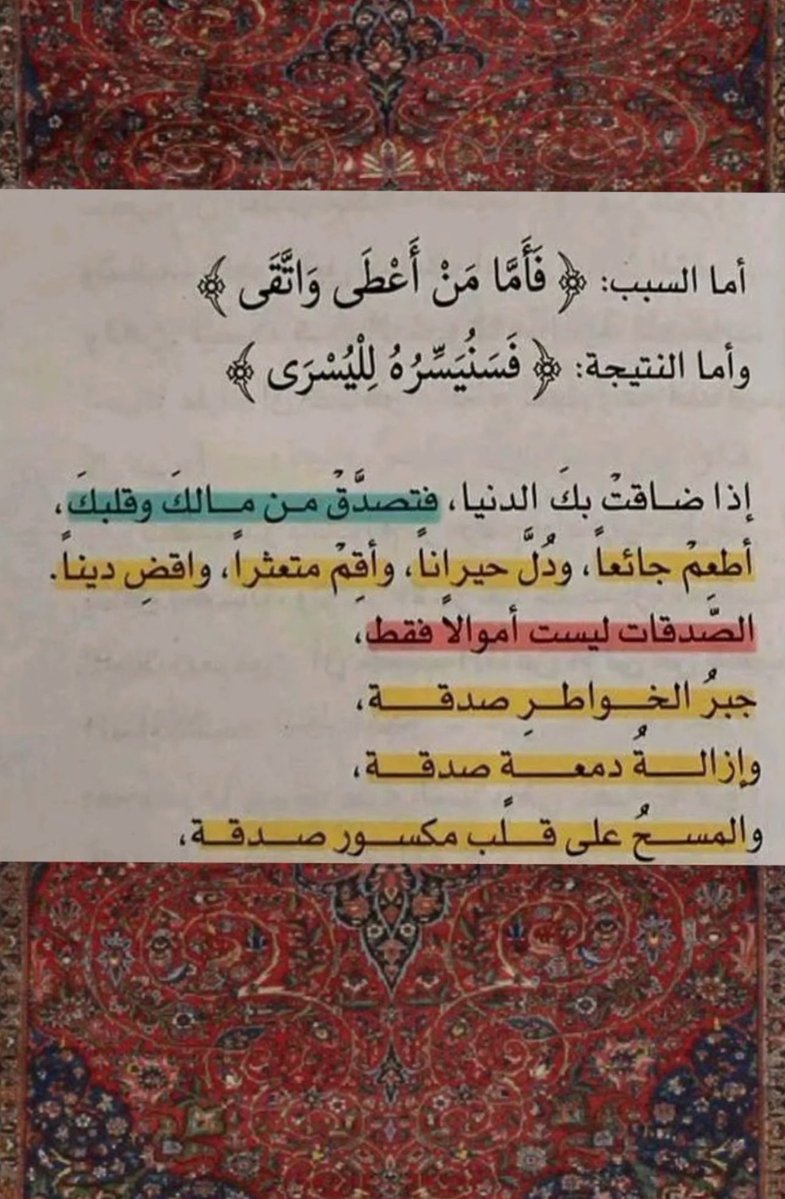 أما السبب: ﴿ فَأَمَّا مَنْ أَعْطَى وَاتَّقَى ﴾
وأما النتيجة: ﴿ فَسَنُيَسِّرُهُ لِلْيُسْرَى ﴾
إذا ضاقتْ بكَ الدنيا، فتصدَّقْ من مالكَ وقلبكَ،
أطعِمْ جائعاً، ودُلَّ حيراناً، وأقِمْ متعثراً، واقضِ ديناً.
الصَّدقات ليست أموالاً فقط،
جبرُ الخواطرِ صدقة،
وإزالةُ دمعة صدقة،
والمسحُ على قلبٍ مكسور صدقة،